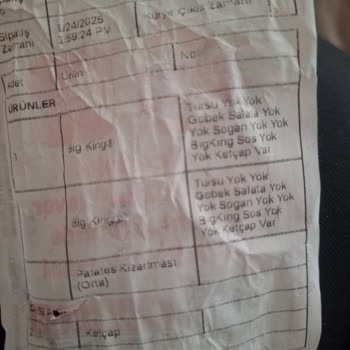 Sipariş Zamanı
1/24/2025
1:59:24 PM
Kurye Çıkış Zamanı
Adet
Ürün
Not
ÜRÜNLER
1
Big King®
Turşu Yok Yok
Göbek Salata Yok
Yok Soğan Yok Yok
BigKing Sos Yok
Yok Ketçap Var
Big King
Turşu Yok Yok
Göbek Salata Yok
Yok Soğan Yok Yok
BigKing Sos Yok
Yok Ketçap Var
Patates Kızartması
(Orta)
Ketçap